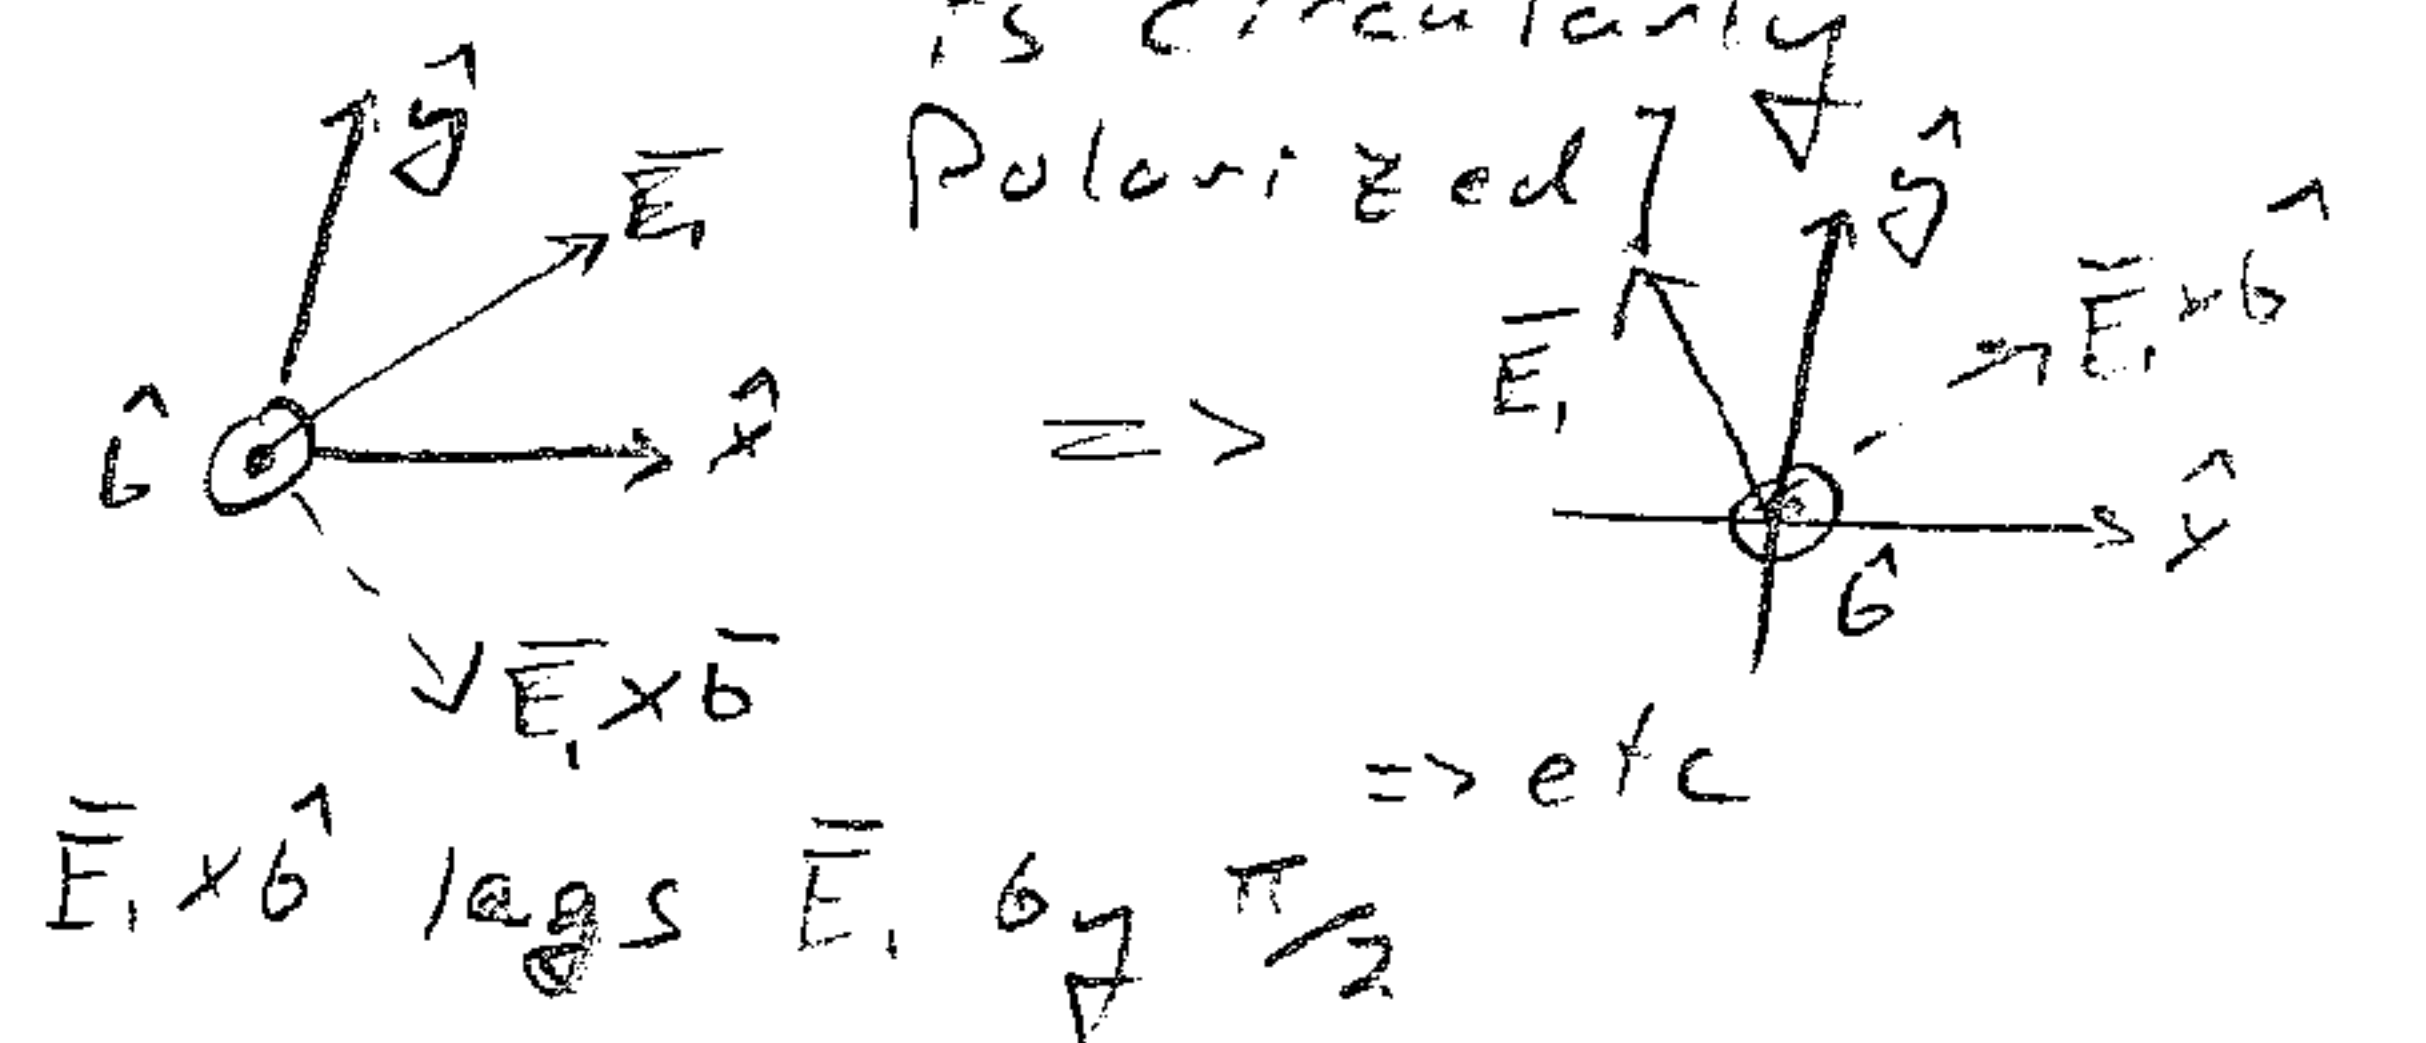 is circularly
Polarized]
ŷ
E̅₁
b̂
x̂
E̅₁ × b̅
=>
ŷ
E̅₁
E̅₁ × b̂
x̂
b̂
=> etc
E̅₁ × b̂ lags E̅₁ by π/2